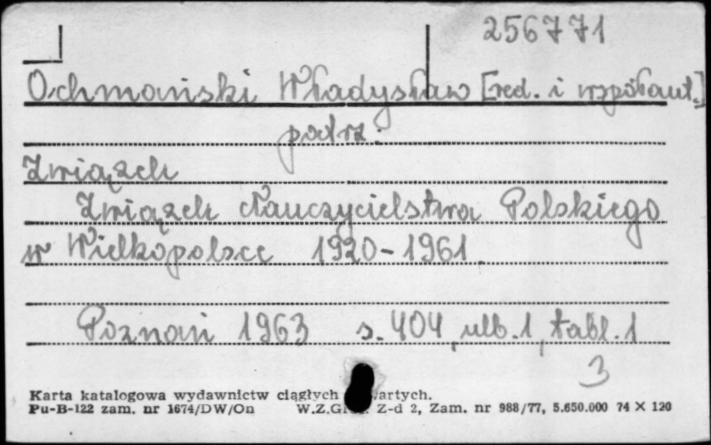 256771
Ochmański Władysław [red. i współaut.]
patrz:
Związek
Związek Nauczycielstwa Polskiego
w Wielkopolsce 1920-1961
Poznań 1963 s. 404, ulb. 1, tabl. 1
3
Karta katalogowa wydawnictw ciągłych
Pu-B-122 zam. nr 1674/DW/On W.Z.Gr. Z-d 2, Zam. nr 988/77, 5.650.000 74 X 120